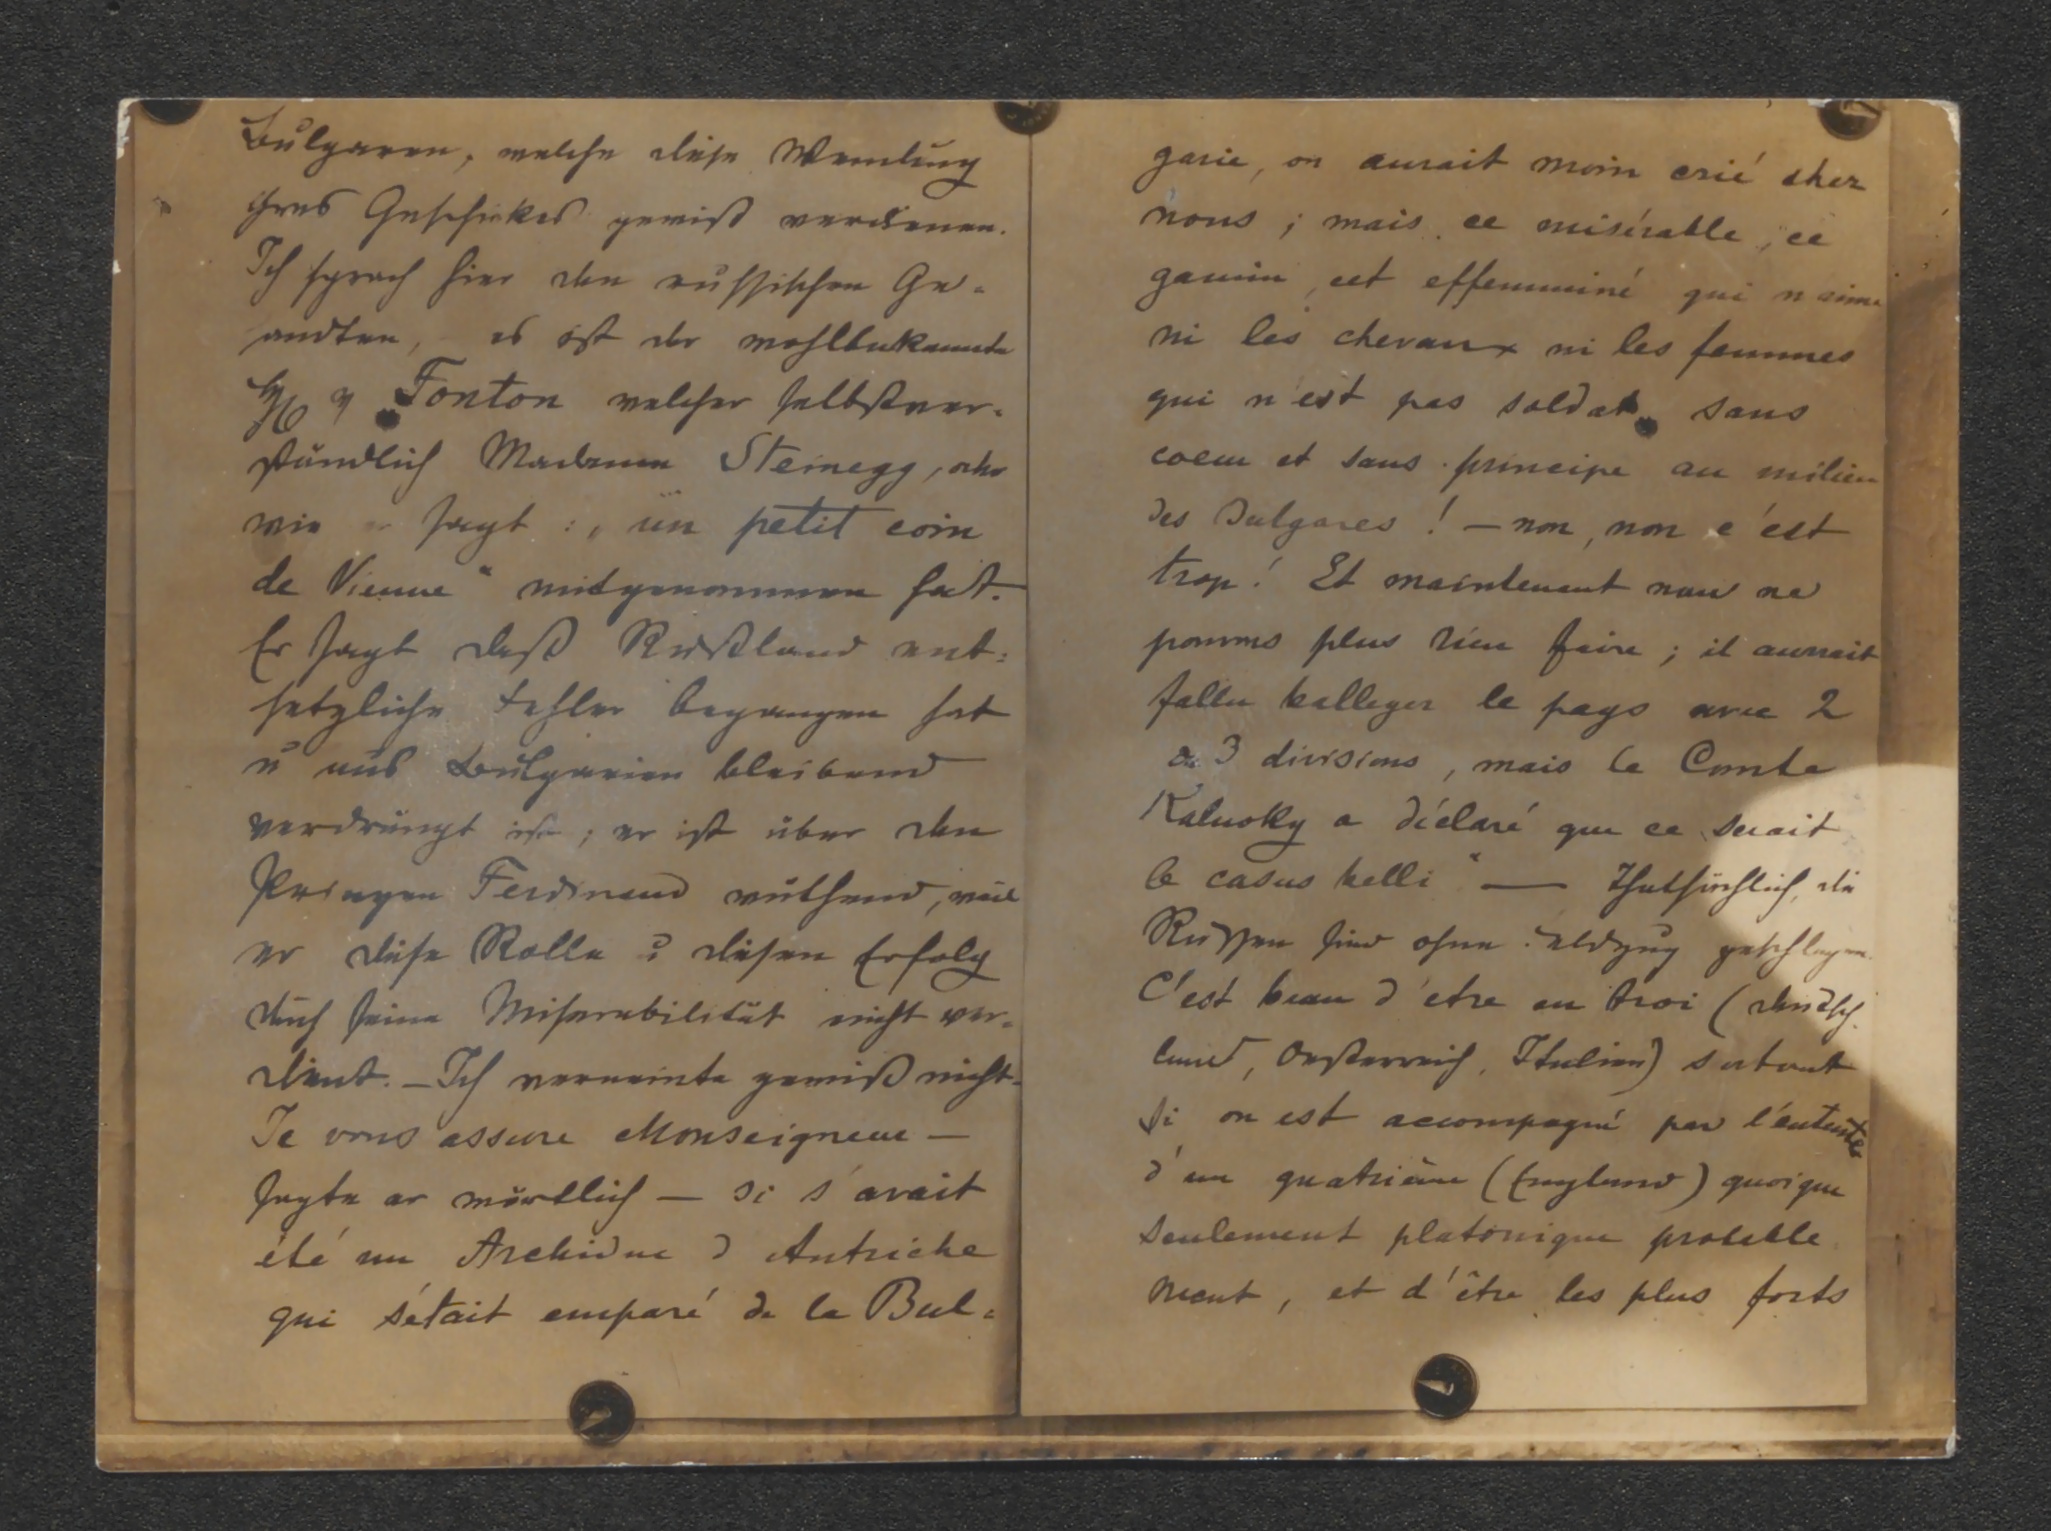 Bulgaren, welche diese Wendung
ihres Geschickes gewiß verdienen.
Ich sprach hier den russischen Ge-
andten, es ist der wohlbekannte
H v Fonton welcher selbstver-
ständlich Madame Steinegg, oder
wie er sagt: „un petit coin
de Vienne“ mitgenommen hat.
Er sagt daß Rußland ent-
setzliche Fehler begangen hat
u aus Bulgarien bleibend
verdrängt ist; er ist über den
Prinzen Ferdinand wüthend, weil
er diese Rolle u diesen Erfolg
durch seine Miserabilität nicht ver-
dient. — Ich verneinte gewiß nicht.
Je vous assure Monseigneur —
sagte er wörtlich — si s'avait
été un Archiduc d Autriche
qui s'était emparé de la Bul-
garie, on aurait moin crié chez
nous; mais ce misérable, ce
gamin, cet effemminé qui n'aime
ni les chevaux ni les femmes
qui n'est pas soldat, sans
coeur et sans principe au milieu
des Bulgares! — non, non c'est
trop! Et maintenant nous ne
pouvons plus rien faire; il aurait
fallu balleyer le pays avec 2
à 3 divisions, mais le Comte
Kalnoky a déclaré que ce serait
le casus belli“ — Thatsächlich, die
Russen sind ohne Feldzug geschlagen.
C'est beau d'etre en troi (Deutsch-
land, Oesterreich, Italien) surtout
si on est accompagné par l'entente
d'un quatrième (England) quoique
seulement platonique probable
ment, et d'être les plus forts